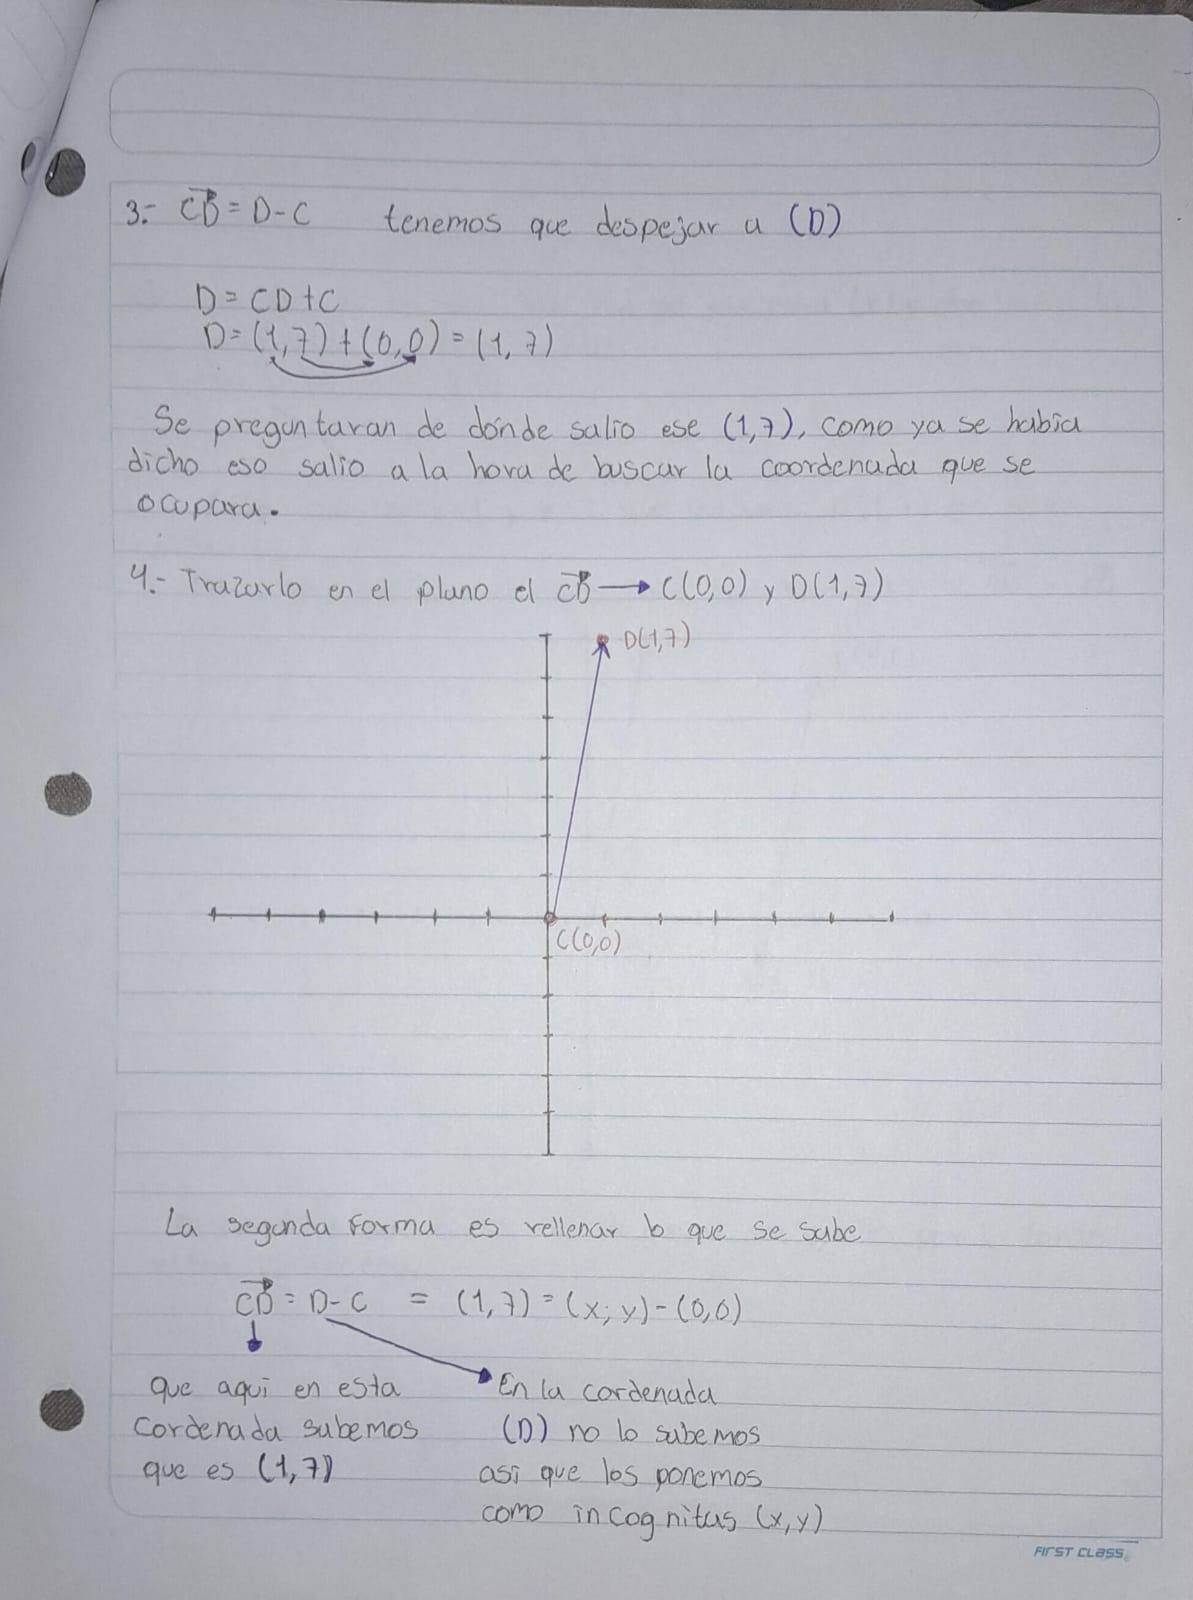 3.- CD = D - C tenemos que despejar a (D)
D = CD + C
D = (1, 7) + (0, 0) = (1, 7)
Se preguntaran de donde salio ese (1,7), como ya se habia
dicho eso salio a la hora de buscar la coordenada que se
ocupara.
4.- Trazarlo en el plano el CD → C(0,0) y D(1,7)
D(1,7)
C(0,0)
La segunda forma es rellenar lo que se sabe
CD = D - C = (1,7) = (x; y) - (0,0)
que aqui en esta
Cordenada sabemos
que es (1,7)
En la cordenada
(D) no lo sabemos
asi que los ponemos
como incognitas (x,y)
FIRST CLASS